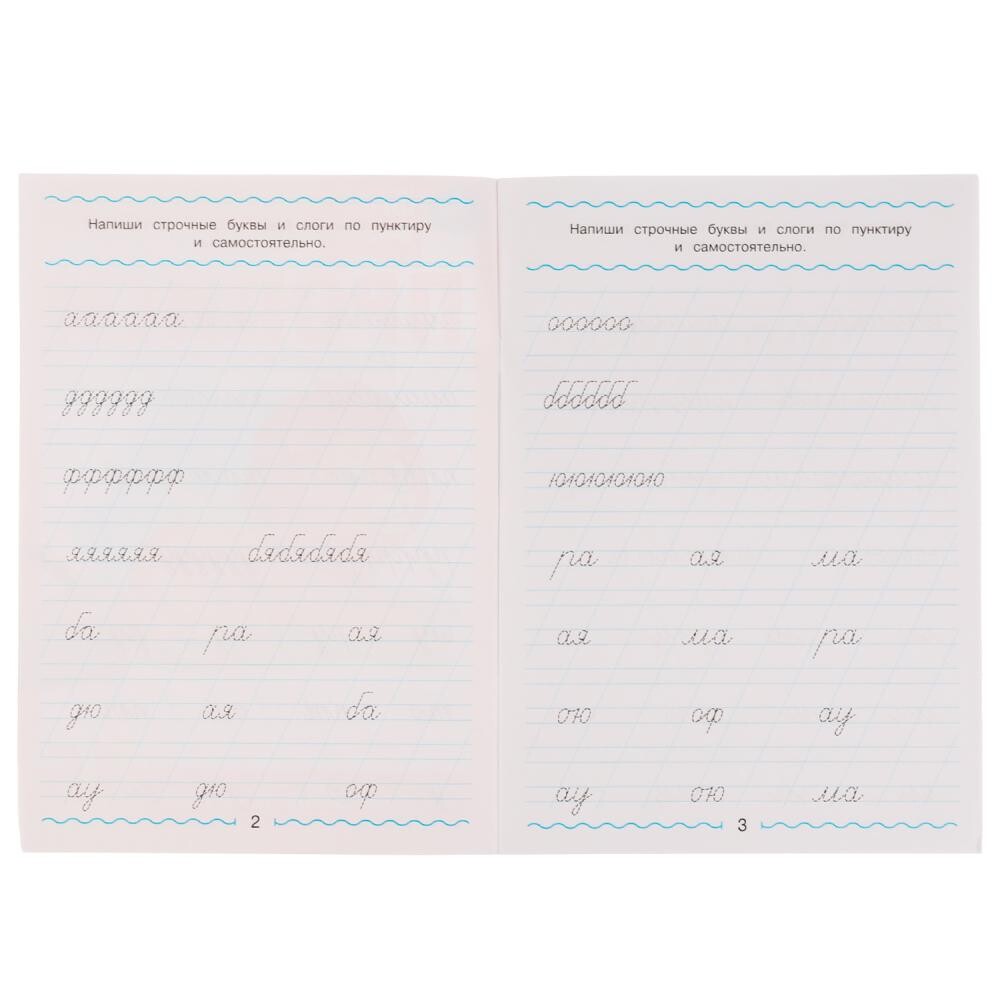 Напиши строчные буквы и слоги по пунктиру
и самостоятельно.
аааааа
дддддд
фффффф
яяяяяя бябябябя
ба ра ая
дю ая ба
ау дю оф
2
Напиши строчные буквы и слоги по пунктиру
и самостоятельно.
оооооо
бббббб
юююююю
ра ая ма
ая ма ра
ою оф ау
ау ою ма
3